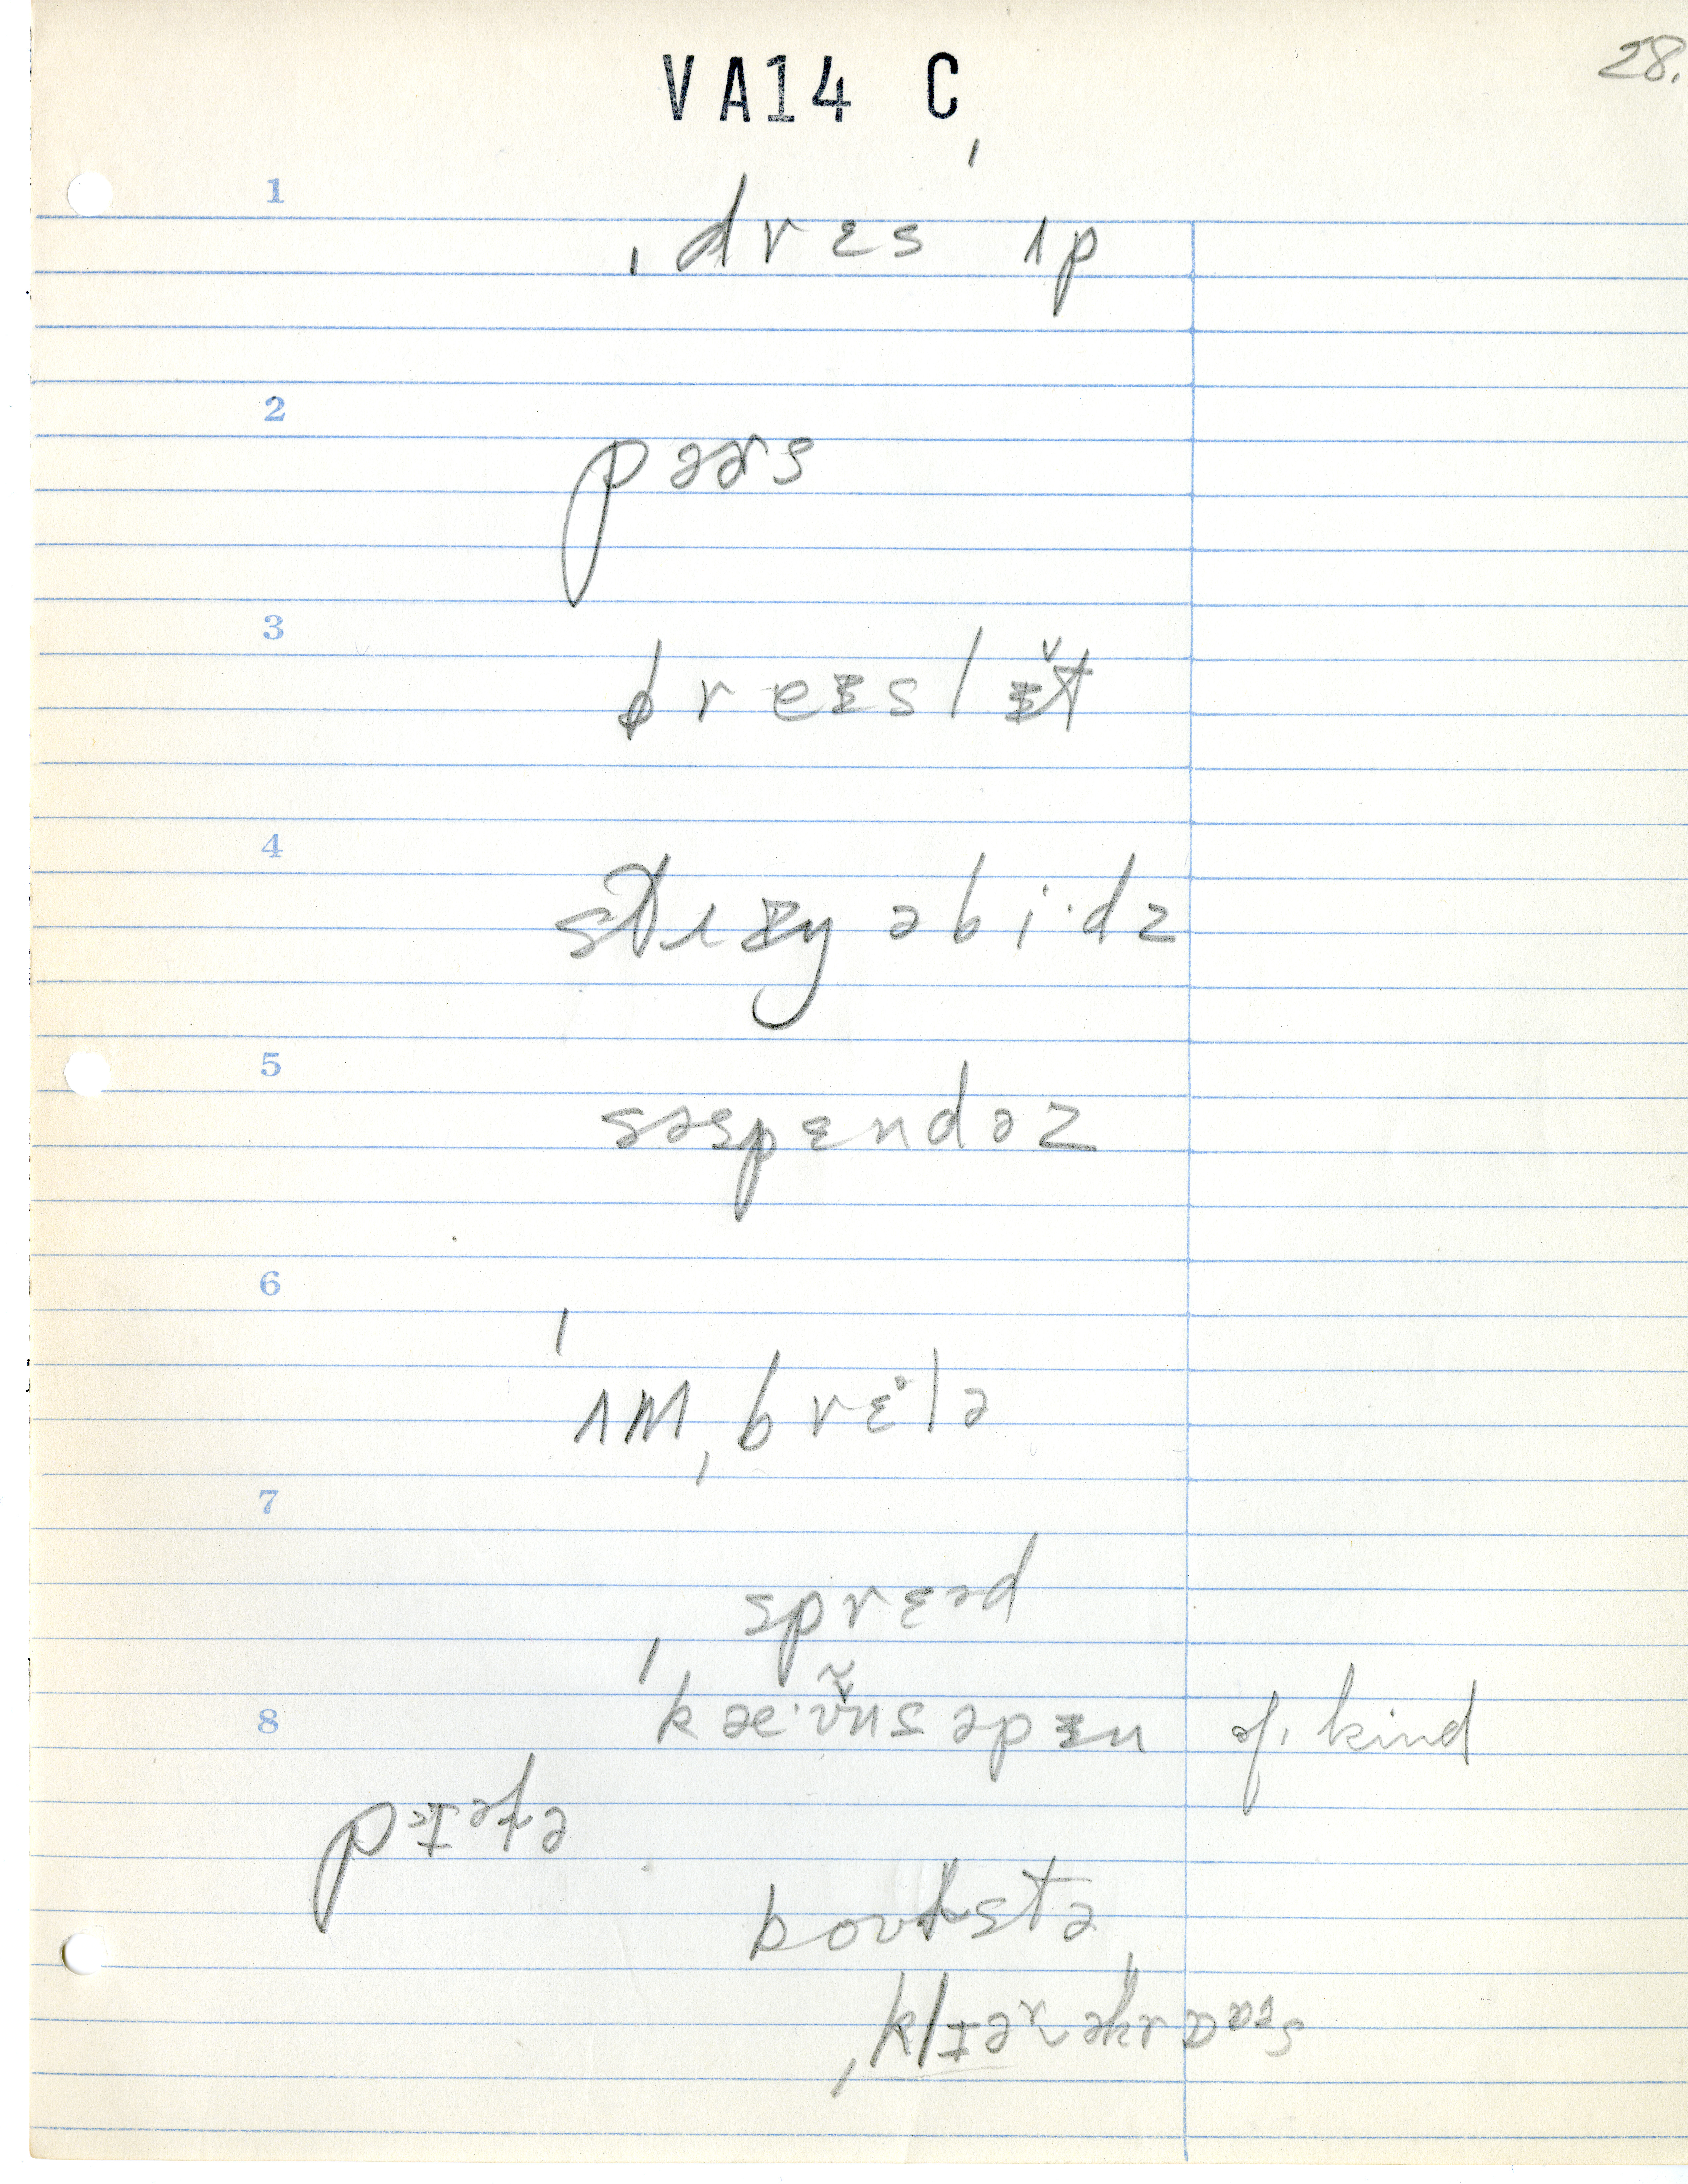 VA14 C
28.
1
ˌdrɛs ˈʌp
2
pəɚs
3
breᵻslᵻt̬
4
strᵻŋ əbi·dz
5
səspɛndəz
6
ˈʌmˌbrɛlə
7
sprɛəd
8
ˈkæ·v̌nsəpᵻn of. kind
pɪəfə
boʊlstə
ˌklɪəɚəkrɒəs